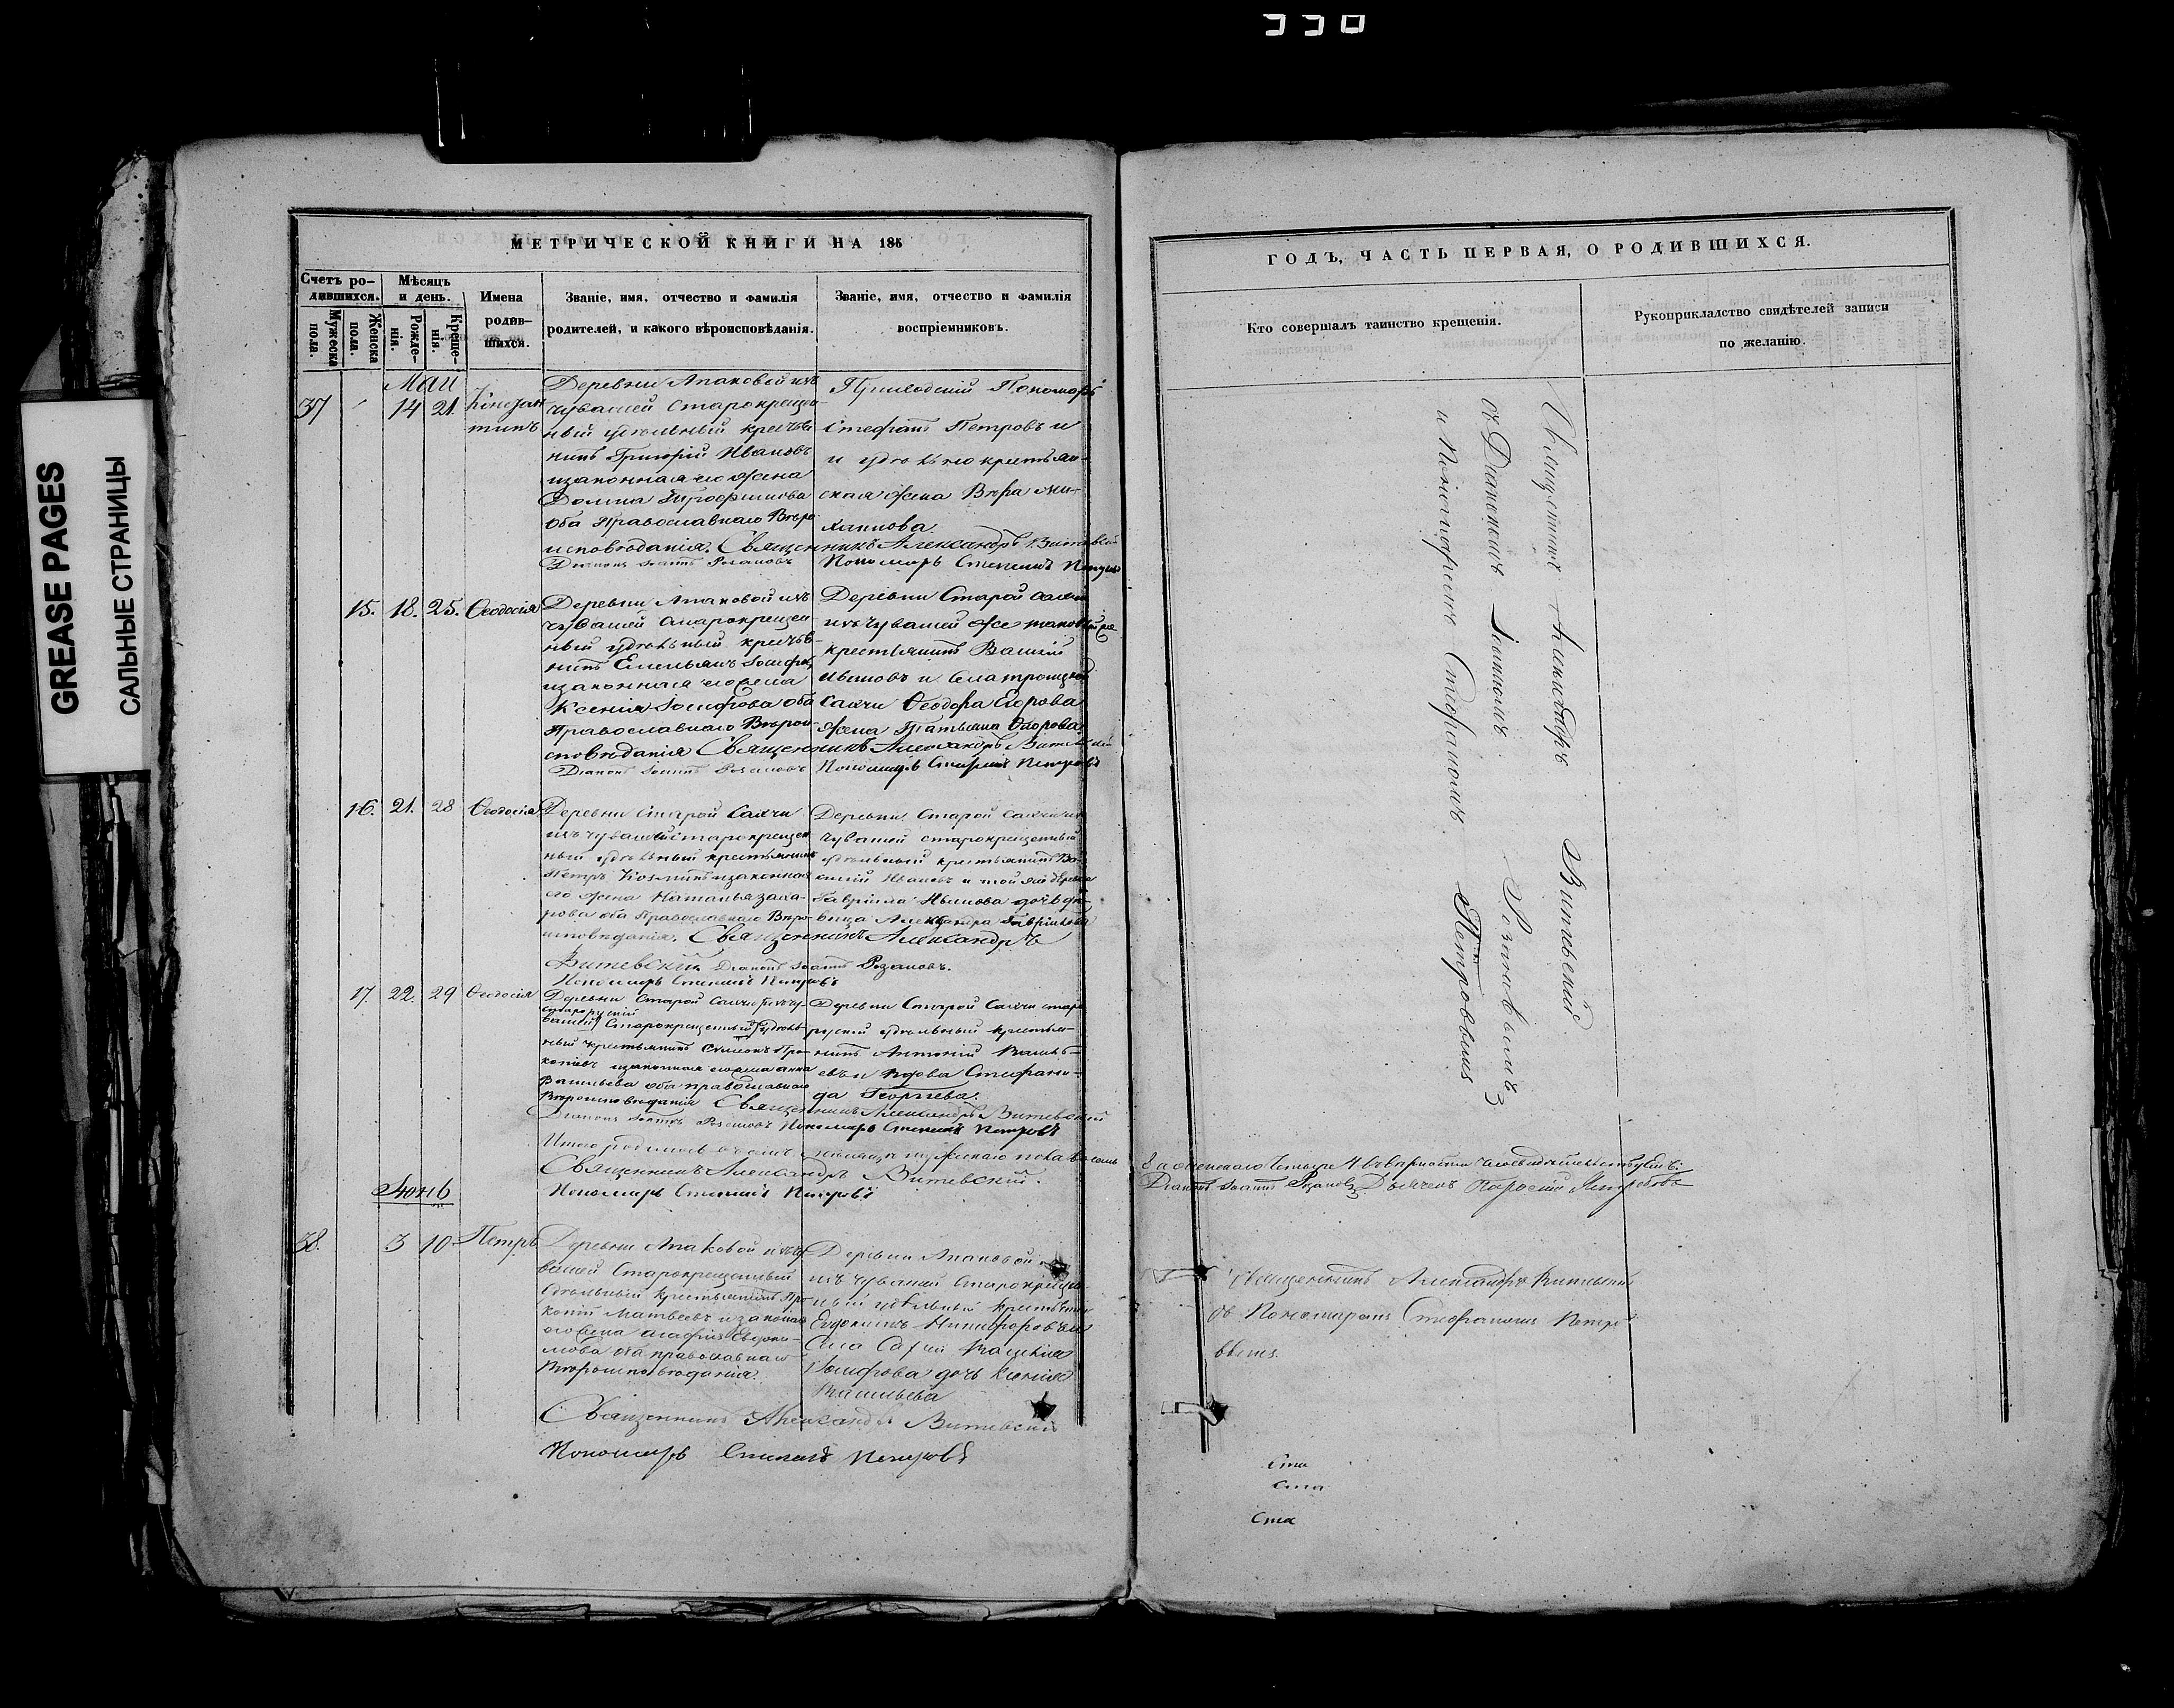 GREASE PAGES
САЛЬНЫЕ СТРАНИЦЫ
МЕТРИЧЕСКОЙ КНИГИ НА 185
Счетъ ро-
дившихся.
Мужеска пола.
Женска пола.
Мѣсяцъ
и день.
Рожде-
нія.
Креще-
нія.
Имена
родив-
шихся.
Званіе, имя, отчество и фамилія
родителей, и какого вѣроисповѣданія.
Званіе, имя, отчество и фамилія
воспріемниковъ.
Маи
37
14
21.
Констан
тинъ
Деревни Апаковой изъ
чувашей старокрещен
ный удѣльный крестья
нинъ Григорій Ивановъ
и законная его жена
Домна
оба Православнаго Вѣро
исповѣданія. Священникъ Александръ Витевскій
Діаконъ Іоаннъ Розановъ
Приходскій Пономарь
Стефанъ Петровъ и
и удѣльно крестьян-
ская жена Вѣра Ми-
хаилова
Пономарь Степанъ Петровъ
15. 18. 25. Ѳеодосія
Деревни Апаковой изъ
чувашей старокрещен
ный удѣльный крестья-
нинъ Емельянъ Іосифовъ
и законная его жена
Ксенія Іосифова оба
Православнаго Вѣрои-
сповѣданія Священникъ Александръ Витевскій
Діаконъ Іоаннъ Розановъ
Деревни Старой Салчи
изъ чувашей
крестьянинъ Василій
Ивановъ и села Троицкой
Салчи Ѳеодора Егорова
жена Татьяна Ѳедорова
Пономарь Стефанъ Петровъ
16. 21. 28 Ѳеодосія
Деревни Старой Салчи
изъ чувашей старокрещен
ный удѣльный крестьянинъ
Петръ Козминъ и законная
его жена Наталья Заха-
рова оба Православнаго Вѣро
исповѣданія. Священникъ Александръ
Витевскій Діаконъ Іоаннъ Розановъ.
Пономарь Степанъ Петровъ
Деревни Старой Салчи изъ
чувашей старокрещенный
удѣльный крестьянинъ Ва-
силій Ивановъ и той же деревни
Гавріила Иванова дочь дѣ-
вица Александра Гаврилова
17. 22. 29 Ѳеодосія
Деревни Старой Салчи изъ чу-
старорускій
вашей Старокрещенный удѣль
ный крестьянинъ Симеонъ Про-
копіевъ и законная его жена Анна
Васильева оба православнаго
Вѣроисповѣданія Священникъ Александръ Витевскій
Діаконъ Іоаннъ Розановъ Пономарь Степанъ Петровъ
Деревни Старой Салчи старо
рускій удѣльный крестья-
нинъ Антоній Василь-
евъ и вдова Стефани-
да Георгіева.
Итого родилось въ маѣ мѣсяцѣ мужескаго пола восемь
8 а женскаго четыре 4
Священникъ Александръ Витевскій.
Діаконъ Іоаннъ Розановъ
Пономарь Степанъ Петровъ
Іюнь
38. 3 10 Петръ
Деревни Апаковой изъ чу
вашей Старокрещенный
Удѣльный крестьянинъ Про
копій Матвеевъ и законная
его жена Агафія Евдоки-
мова оба православнаго
Вѣроисповѣданія.
Деревни Апаковой
изъ чувашей Старокрещен
ный удѣльный крестьянинъ
Евдокимъ Никифоровъ и
Села Салчи Василія
Іосифова дочь Ксенія
Васильева
Священникъ Александръ Витевскій
Пономарь Степанъ Петровъ
ГОДЪ, ЧАСТЬ ПЕРВАЯ, О РОДИВШИХСЯ.
Кто совершалъ таинство крещенія.
Рукоприкладство свидѣтелей записи
по желанію.
Священникъ Александръ Витевскій
съ Діакономъ Іоанномъ Розановымъ
и Пономаремъ Стефаномъ Петровымъ
Священникъ Александръ Витевскій
съ Пономаремъ Стефаномъ Петро
вымъ
Сте
Сте
Сте